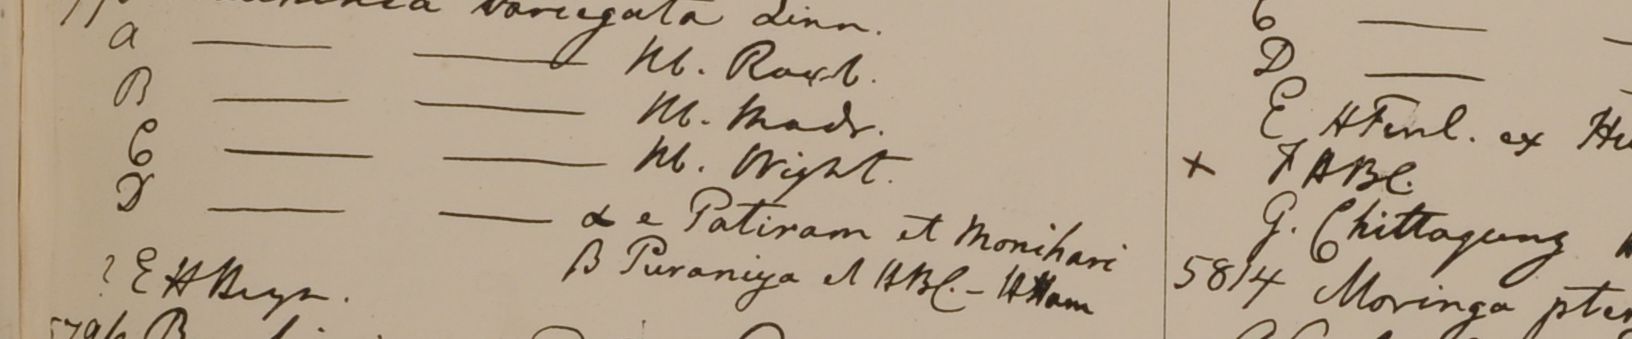 variegata Linn.
A — — Hb. Roxb.
B — — Hb. Madr.
C — — Hb. Wight.
D — — α e Patiram et Monihari
β Puraniya et HBC. - HHam
? E H Heyn.
5796 B
C —
D —
E HFinl. ex
+ F HBC.
G. Chittagung
5814 Moringa